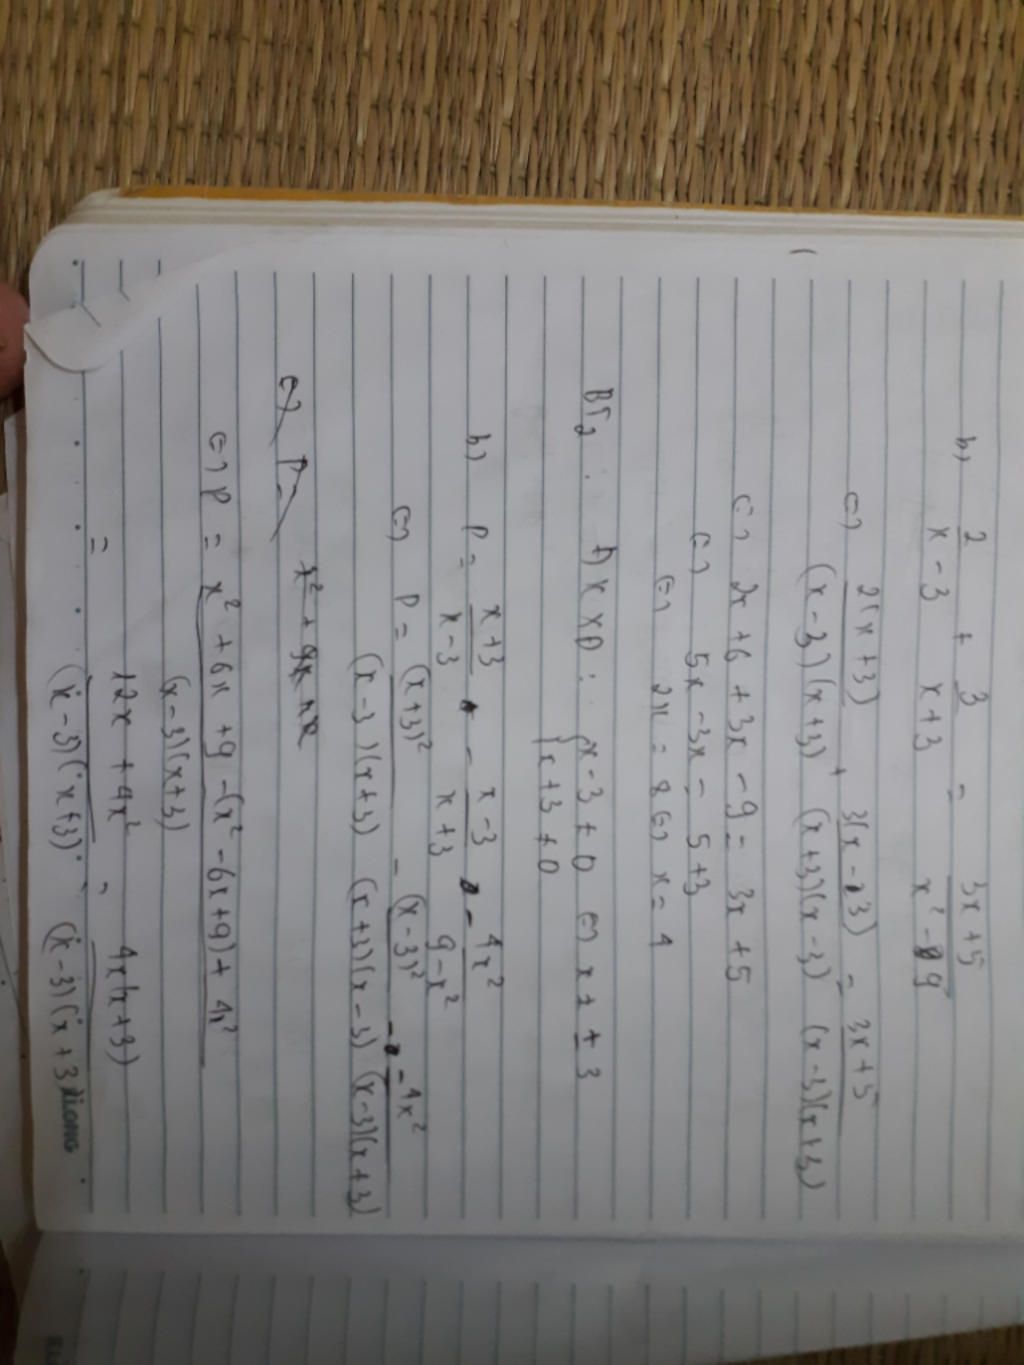 b) 2/(x-3) + 3/(x+3) = (3x+5)/(x²-9)
<=> 2(x+3)/((x-3)(x+3)) + 3(x-3)/((x+3)(x-3)) = (3x+5)/((x-3)(x+3))
<=> 2x+6+3x-9 = 3x+5
<=> 5x-3x = 5+3
<=> 2x = 8 <=> x = 4
BT2: ĐKXĐ: { x-3 ≠ 0 <=> x ≠ ±3
{ x+3 ≠ 0
b) P = (x+3)/(x-3) - (x-3)/(x+3) - 4x²/(9-x²)
<=> P = (x+3)²/((x-3)(x+3)) - (x-3)²/((x+3)(x-3)) - -4x²/((x-3)(x+3))
<=> P =
<=> P = (x²+6x+9-(x²-6x+9)+4x²)/((x-3)(x+3))
= (12x+4x²)/((x-3)(x+3)) = 4x(x+3)/((x-3)(x+3))